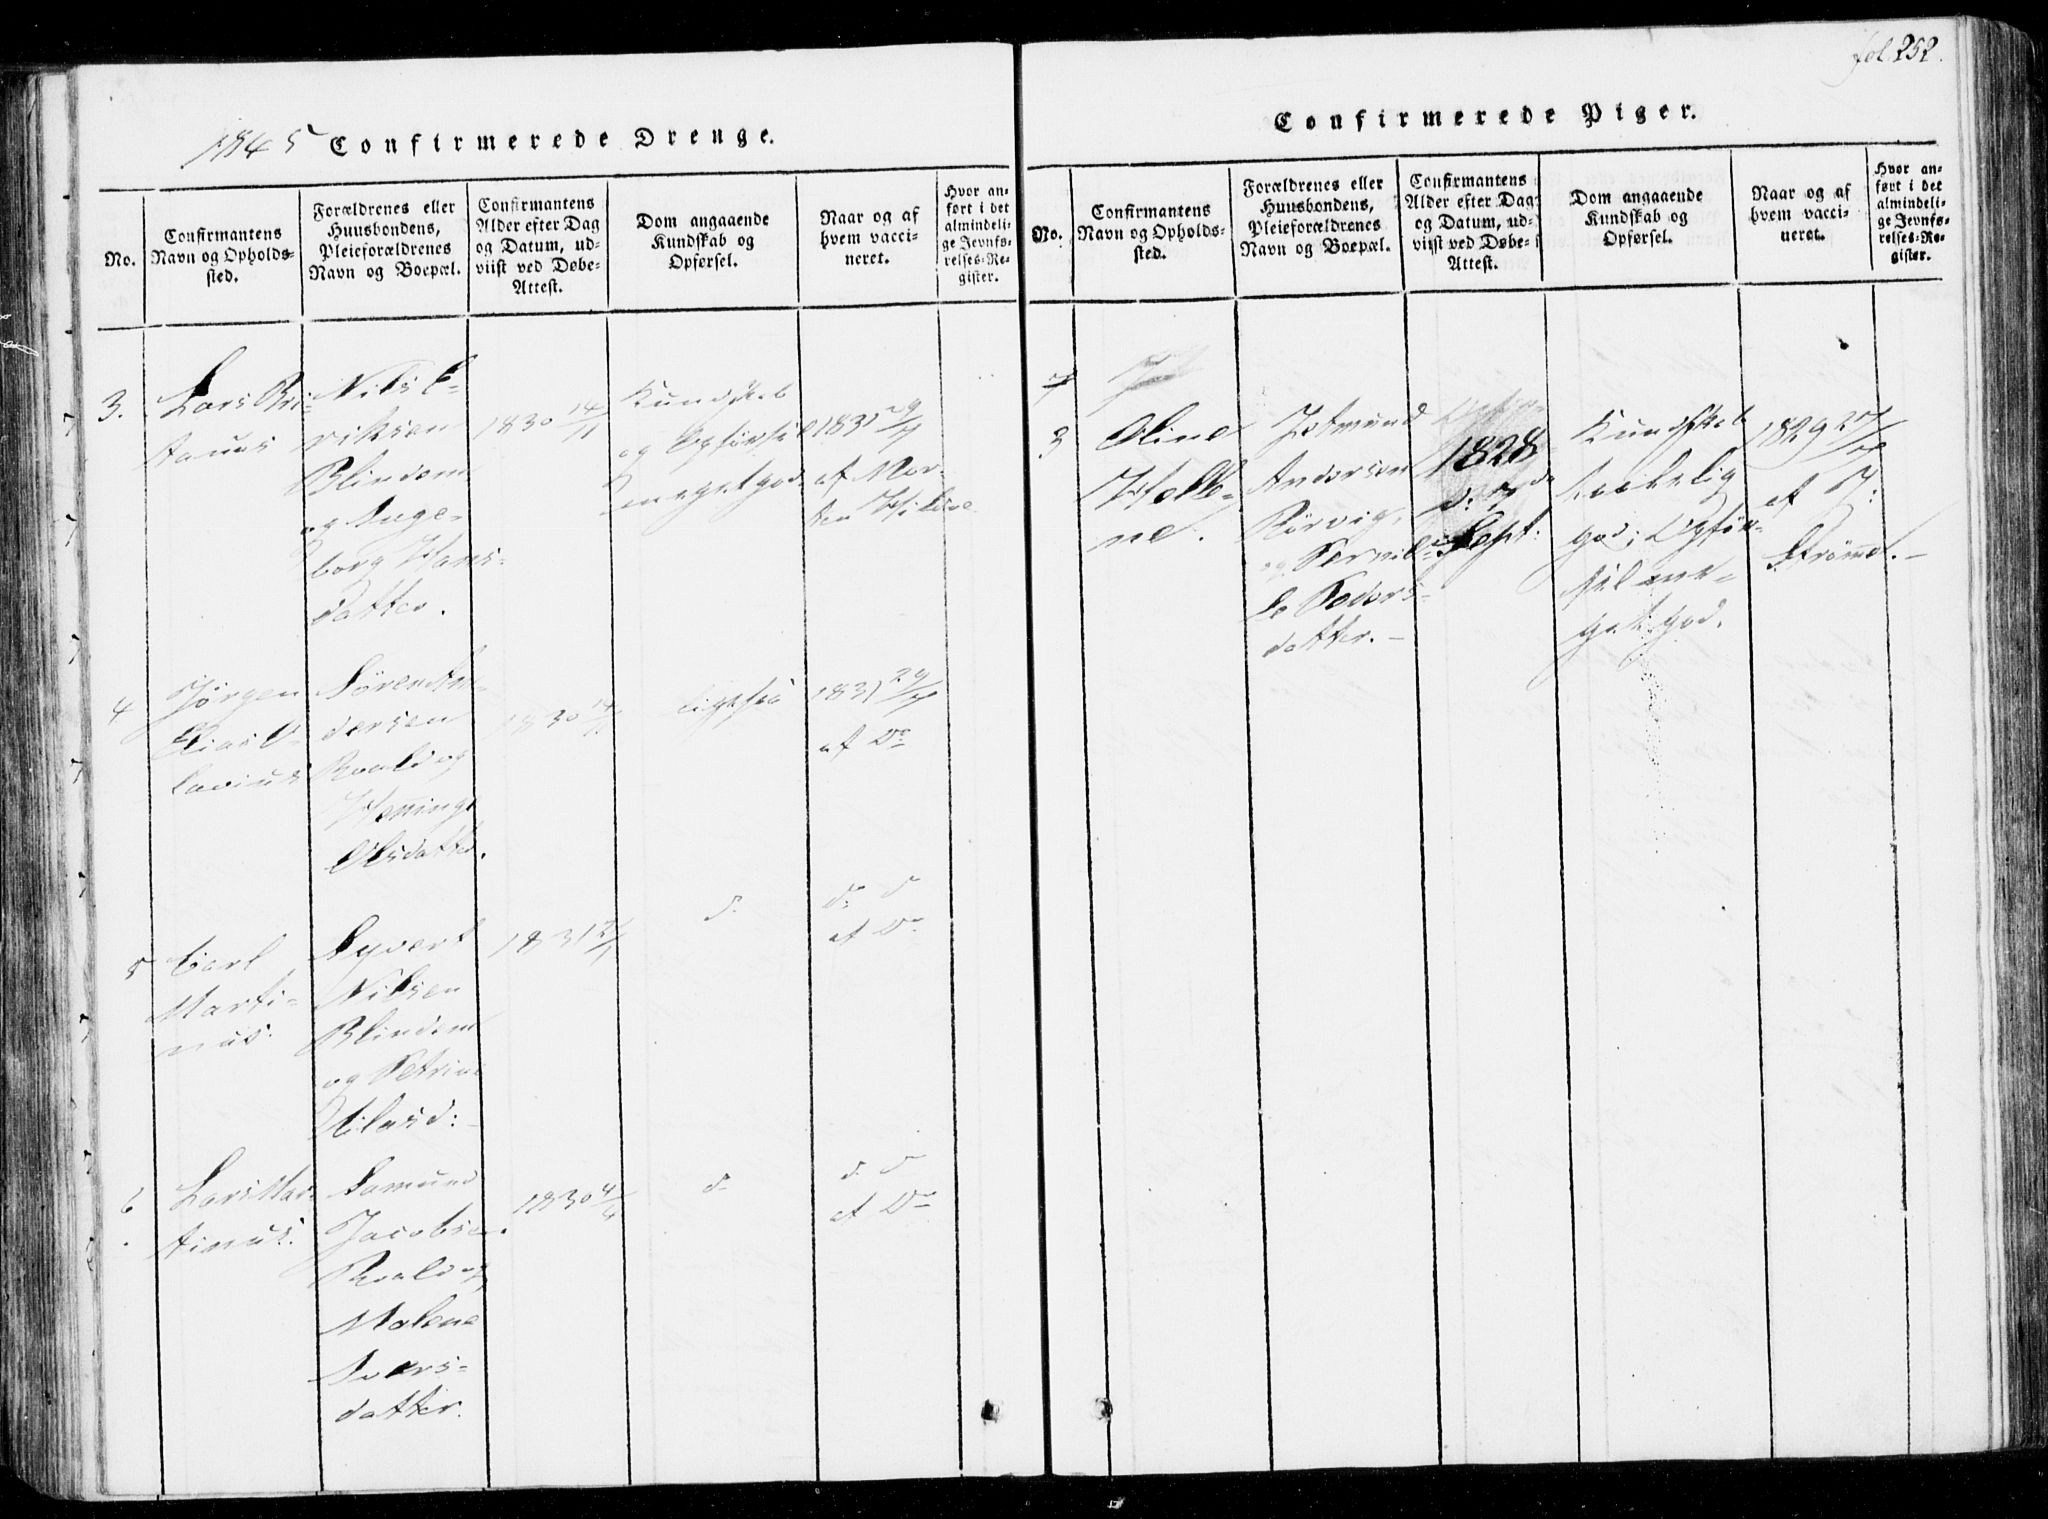 fol. 252.
1845 Confirmerede Drenge.
No.
Confirmantens
Navn og Opholds-
sted.
Forældrenes eller
Huusbondens,
Pleieforældrenes
Navn og Boepæl.
Confirmantens
Alder efter Dag
og Datum, ud-
viist ved Døbe-
Attest.
Dom angaaende
Kundskab og
Opførsel.
Naar og af
hvem vacci-
neret.
Hvor an-
ført i det
almindeli-
ge Jevnfø-
relses-Re-
gister.
3.
Lars
Nils E-
riksen
Blindem
og Inge-
borg Hans-
datter.
1830 14/11
Kundskab
og Opførsel
meget god.
1831 29/7
af Mor-
ten
4
Jørgen
Elias O-
lavius
Søren An-
dersen
Roald og
Henning
Olsdatter.
1830
ligesaa
1831 29/7
af Do
5
Carl
Marti-
nus.
Syvert
Nilsen
Blindem
og Petrine
Olasd:
1831
d.
d: d
af Do
6
Lars Mar-
tinus.
Samund
Jacobsen
Roald og
Malene
Ivers-
datter.
1830 4/4
d.
d. d
af Do
Confirmerede Piger.
No.
Confirmantens
Navn og Opholds-
sted.
Forældrenes eller
Huusbondens,
Pleieforældrenes
Navn og Boepæl.
Confirmantens
Alder efter Dag
og Datum, ud-
viist ved Døbe-
Attest.
Dom angaaende
Kundskab og
Opførsel.
Naar og af
hvem vacci-
neret.
Hvor an-
ført i det
almindeli-
ge Jevnfø-
relses-Re-
gister.
3
Oline
Helle-
ne.
Jetmund
Andersen
Rørvig,
og Pernil-
le Peders-
datter.-
1828
d: 7de
Sept:
Kundskab
taalelig
god; Opfør-
sel me-
get god.
1829 27/7
af J:
Strømme.-